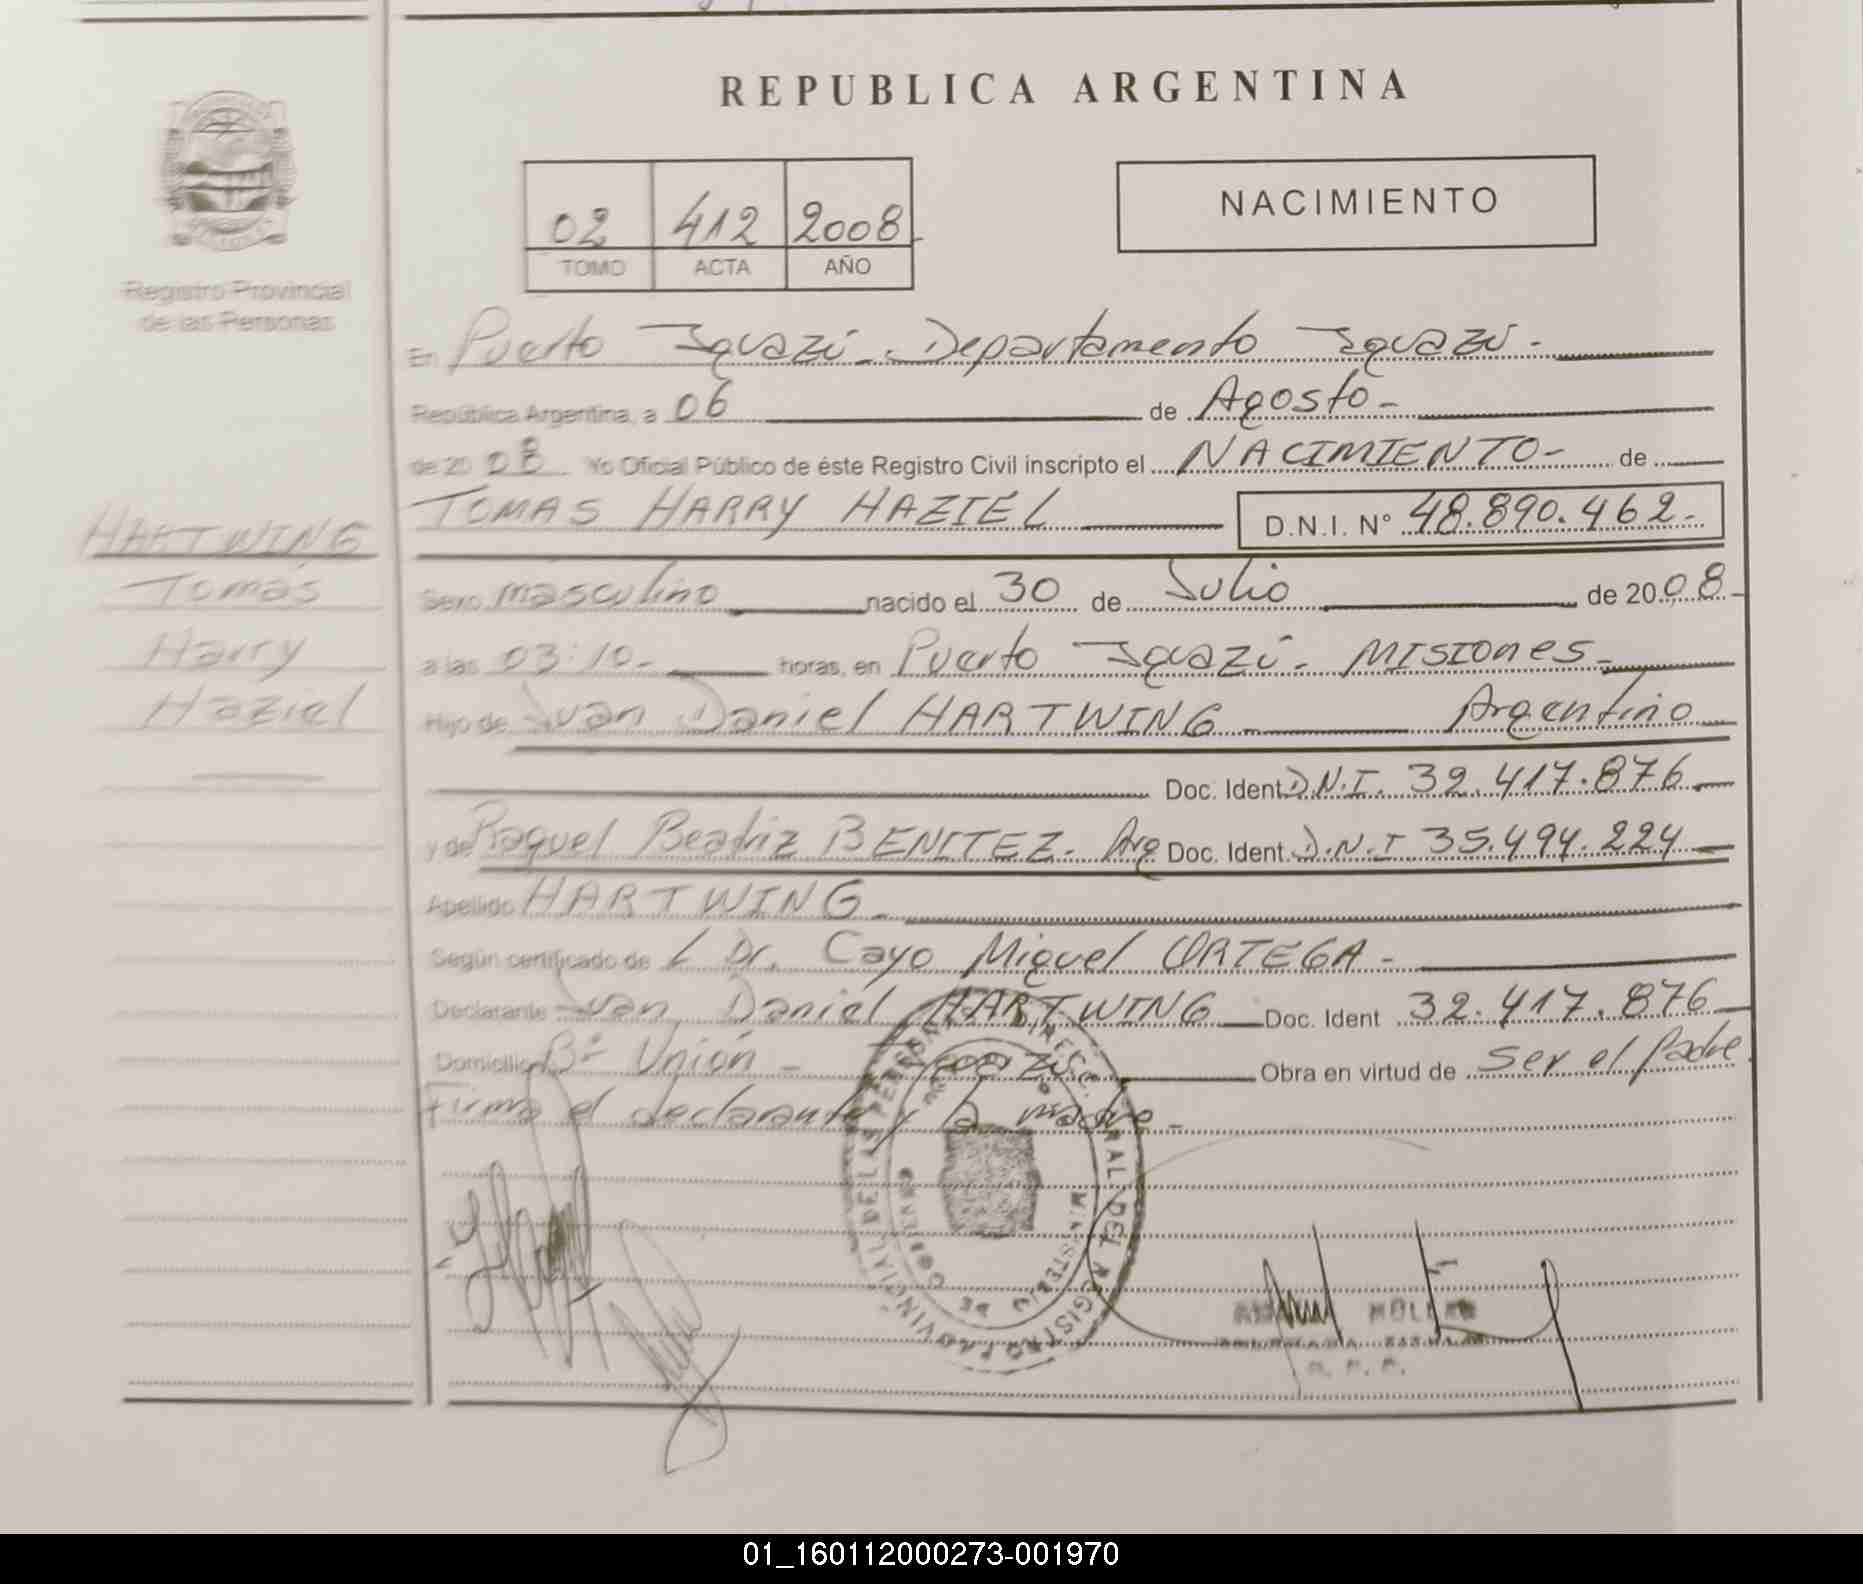 REPUBLICA ARGENTINA
Registro Provincial
de las Personas
02 412 2008
TOMO ACTA AÑO
NACIMIENTO
En Puerto Iguazú - Departamento Iguazú -
República Argentina, a 06 de Agosto -
de 20 08 Yo Oficial Público de éste Registro Civil inscripto el NACIMIENTO - de
TOMAS HARRY HAZIEL D.N.I. N° 48.890.462.-
HARTWING
Tomás
Harry
Haziel
Sexo masculino nacido el 30 de Julio de 20 08 -
a las 03:10 - horas, en Puerto Iguazú - MISIONES -
Hijo de Juan Daniel HARTWING - Argentino
Doc. Ident D.N.I. 32.417.876 -
y de Raquel Beatriz BENITEZ - Arg Doc. Ident. D.N.I 35.494.224 -
Apellido HARTWING -
Según certificado de L Dr. Cayo Miguel ORTEGA -
Declarante Juan Daniel HARTWING - Doc. Ident 32.417.876 -
Domicilio B° Unión - Iguazú Obra en virtud de Ser el Padre.
Firma el declarante y la madre -
REGISTRO PROVINCIAL DE LAS
MINISTERIO DE GOBIERNO
R. P. P.
01_160112000273-001970